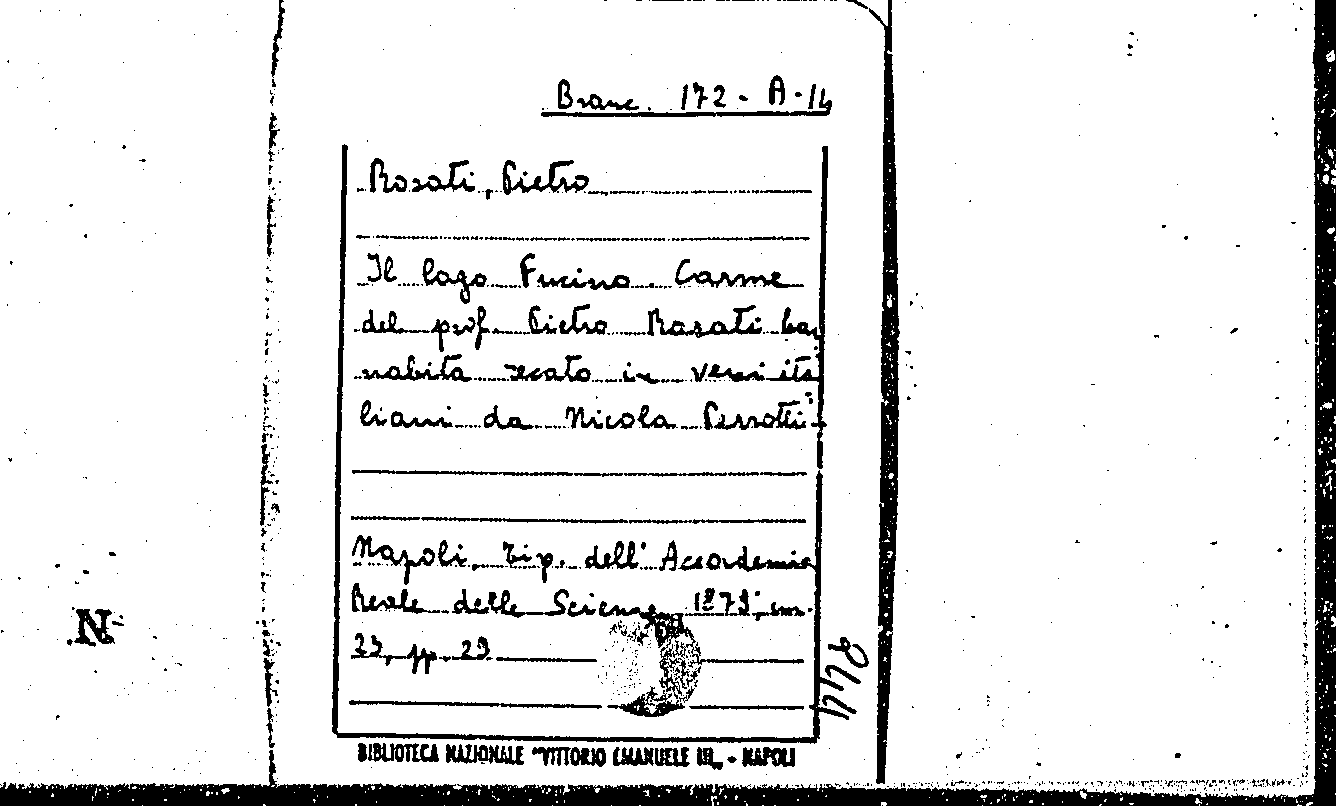 Branc. 172-A-14
Rosati, Pietro
Il lago Fucino. Carme
del prof. Pietro Rosati bar
nabita recato in versi ita
liani da Nicola Perrotti.
Napoli, Tip. dell'Accademia
Reale delle Scienze, 1879, cm.
23, pp. 29
BIBLIOTECA NAZIONALE "VITTORIO EMANUELE III" - NAPOLI
N